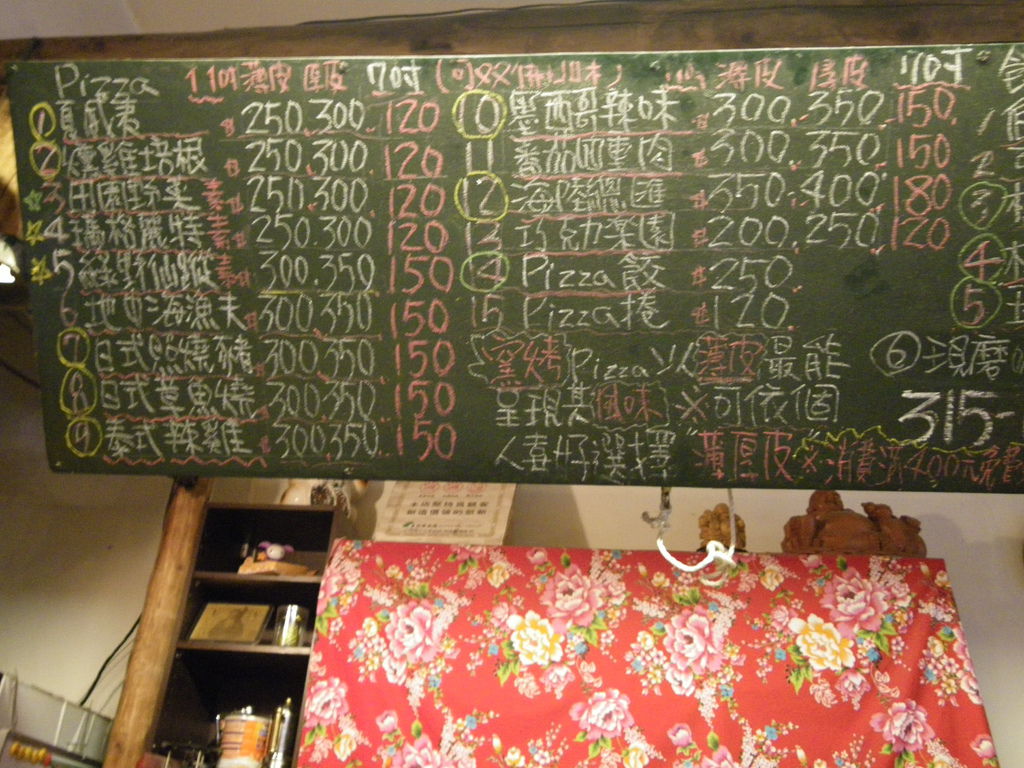 Pizza 11吋薄皮 厚皮 7吋
① 夏威夷 $250.300. 120
② 燻雞培根 $250.300 120
☆3 田園野菜 素$250.300 120
☆4 瑪格麗特 素$250.300 120
☆5 綠野仙蹤 素$300.350 150
6 地中海漁夫 $300.350 150
⑦ 日式照燒豬 $300.350 150
⑧ 日式章魚燒 $300.350 150
⑨ 泰式辣雞 $300.350. 150
薄皮 厚皮 7吋
⑩ 墨西哥辣味 $300.350. 150
11 番茄燻肉 $300.350. 150
⑫ 海陸總匯 $350.400. 180
13 巧克力樂園 $200.250. 120
⑭ Pizza餃 $250.
15 Pizza捲 $120.
窯烤Pizza以薄皮最能
呈現其風味 ※可依個
人喜好選擇"薄厚皮"
1
2
③
④
⑤
⑥ 現磨
315-
※消費滿400元免費